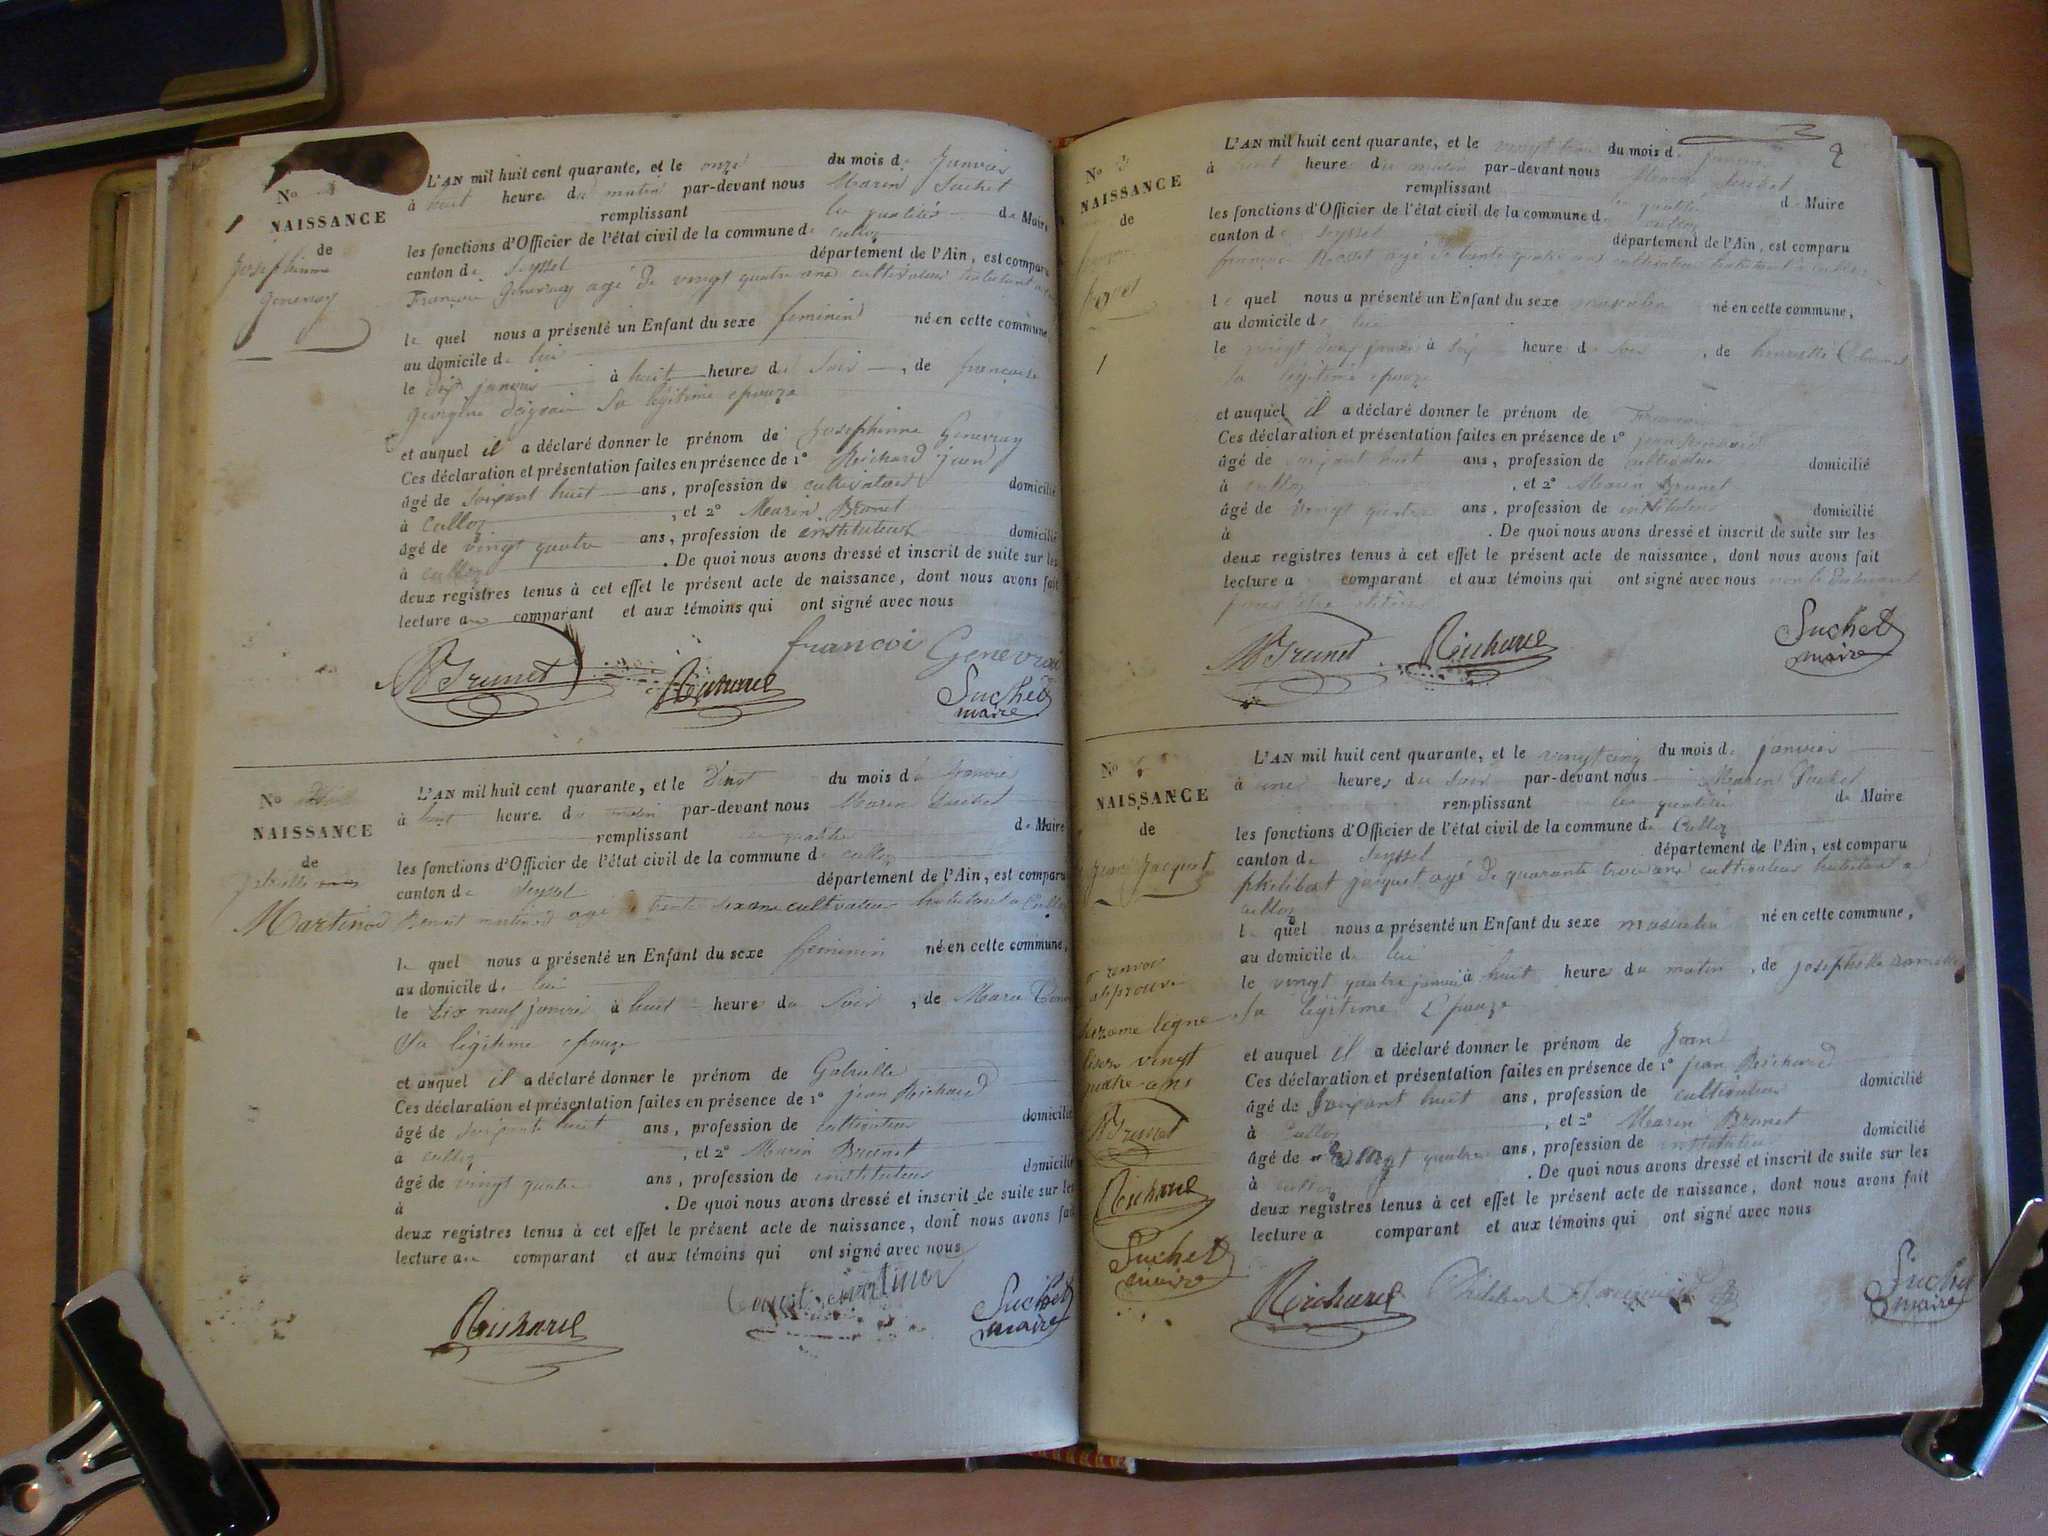 N°
NAISSANCE
de
Josephinne
Genevray
L'AN mil huit cent quarante, et le onze du mois de Janvier
à huit heure du matin par-devant nous Marin Suchet
remplissant les qualités de Maire
les fonctions d'Officier de l'état civil de la commune de culloz
canton de Seyssel département de l'Ain, est comparu
François Genevray agé de vingt quatre ans cultivateur
le quel nous a présenté un Enfant du sexe feminin né en cette commune,
au domicile de lui
le dix janvier à huit heures du Soir, de françoise
Sa légitime epouze
et auquel il a déclaré donner le prénom de Josephinne Genevray
Ces déclaration et présentation faites en présence de 1° Reichard jean
âgé de Soixant huit ans, profession de cultivateur domicilié
à Culloz, et 2° Marin Brunet
âgé de vingt quatre ans, profession de instituteur domicilié
à culloz. De quoi nous avons dressé et inscrit de suite sur les
deux registres tenus à cet effet le présent acte de naissance, dont nous avons fait
lecture au comparant et aux témoins qui ont signé avec nous
francois Genevrai
Brunet Richard Suchet
maire
N°
NAISSANCE
de
Martinod
L'AN mil huit cent quarante, et le vingt du mois de Janvier
à huit heure du matin par-devant nous Marin Suchet
remplissant les qualités de Maire
les fonctions d'Officier de l'état civil de la commune de culloz
canton de Seyssel département de l'Ain, est comparu
agé de trente six ans cultivateur habitant a Culloz
le quel nous a présenté un Enfant du sexe feminin né en cette commune,
au domicile de lui
le dix neuf janvier à huit heure du Soir, de Marie
Sa légitime epouze
et auquel il a déclaré donner le prénom de Gabrielle
Ces déclaration et présentation faites en présence de 1° jean Reichard
âgé de Soixante huit ans, profession de cultivateur domicilié
à culloz, et 2° Marin Brunet
âgé de vingt quatre ans, profession de instituteur domicilié
à . De quoi nous avons dressé et inscrit de suite sur les
deux registres tenus à cet effet le présent acte de naissance, dont nous avons fait
lecture au comparant et aux témoins qui ont signé avec nous
Richard martinod Suchet
maire
2
N° 3
NAISSANCE
de
L'AN mil huit cent quarante, et le vingt trois du mois de janvier
à huit heure du matin par-devant nous Marin Suchet
remplissant les qualités de Maire
les fonctions d'Officier de l'état civil de la commune de culloz
canton de Seyssel département de l'Ain, est comparu
françois agé de trente quatre ans cultivateur
le quel nous a présenté un Enfant du sexe masculin né en cette commune,
au domicile de lui
le vingt deux janvier à Six heure du Soir, de henriette
Sa légitime epouze
et auquel il a déclaré donner le prénom de François
Ces déclaration et présentation faites en présence de 1° jean Reichard
âgé de soixant huit ans, profession de cultivateur domicilié
à culloz, et 2° Marin Brunet
âgé de vingt quatre ans, profession de instituteur domicilié
à . De quoi nous avons dressé et inscrit de suite sur les
deux registres tenus à cet effet le présent acte de naissance, dont nous avons fait
lecture a comparant et aux témoins qui ont signé avec nous non le declarant
Brunet Richard Suchet
maire
N°
NAISSANCE
de
Jean Jacquet
L'AN mil huit cent quarante, et le vingt cinq du mois de janvier
à une heures du Soir par-devant nous Marin Suchet
remplissant les qualités de Maire
les fonctions d'Officier de l'état civil de la commune de Culloz
canton de Seyssel département de l'Ain, est comparu
philibert jacquet agé de quarante trois ans cultivateur habitant a
culloz
le quel nous a présenté un Enfant du sexe masculin né en cette commune,
au domicile de lui
le vingt quatre janvier à huit heures du matin, de josephette
Sa légitime Epouze
et auquel il a déclaré donner le prénom de Jean
Ces déclaration et présentation faites en présence de 1° jean Reichard
âgé de Soixant huit ans, profession de cultivateur domicilié
à Culloz, et 2° Marin Brunet
âgé de vingt quatre ans, profession de instituteur domicilié
à culloz. De quoi nous avons dressé et inscrit de suite sur les
deux registres tenus à cet effet le présent acte de naissance, dont nous avons fait
lecture a comparant et aux témoins qui ont signé avec nous
renvoi
approuvé
ligne
vingt
quatre ans
Brunet
Richard
Suchet
maire
Richard Philibert Suchet
maire